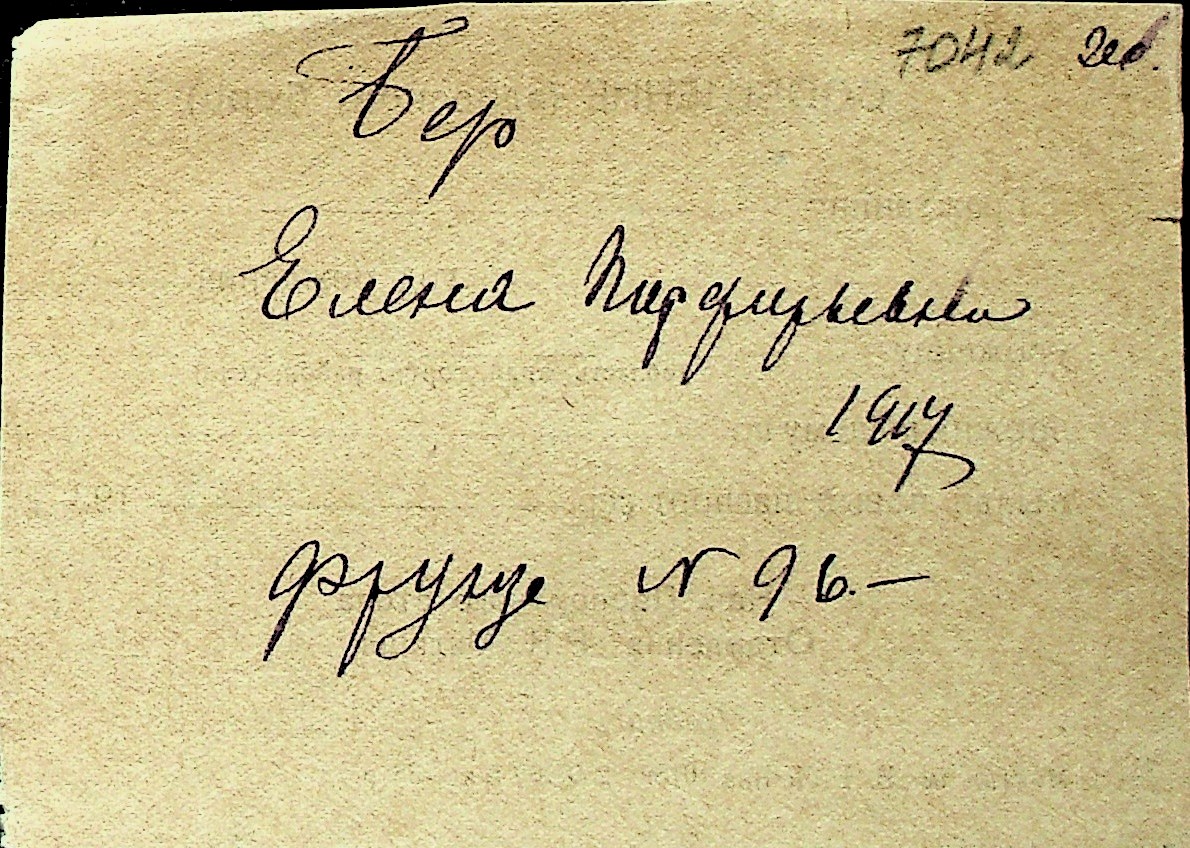 7042
Бер
Елена Парфирьевна
1917
Фрунзе № 96.—